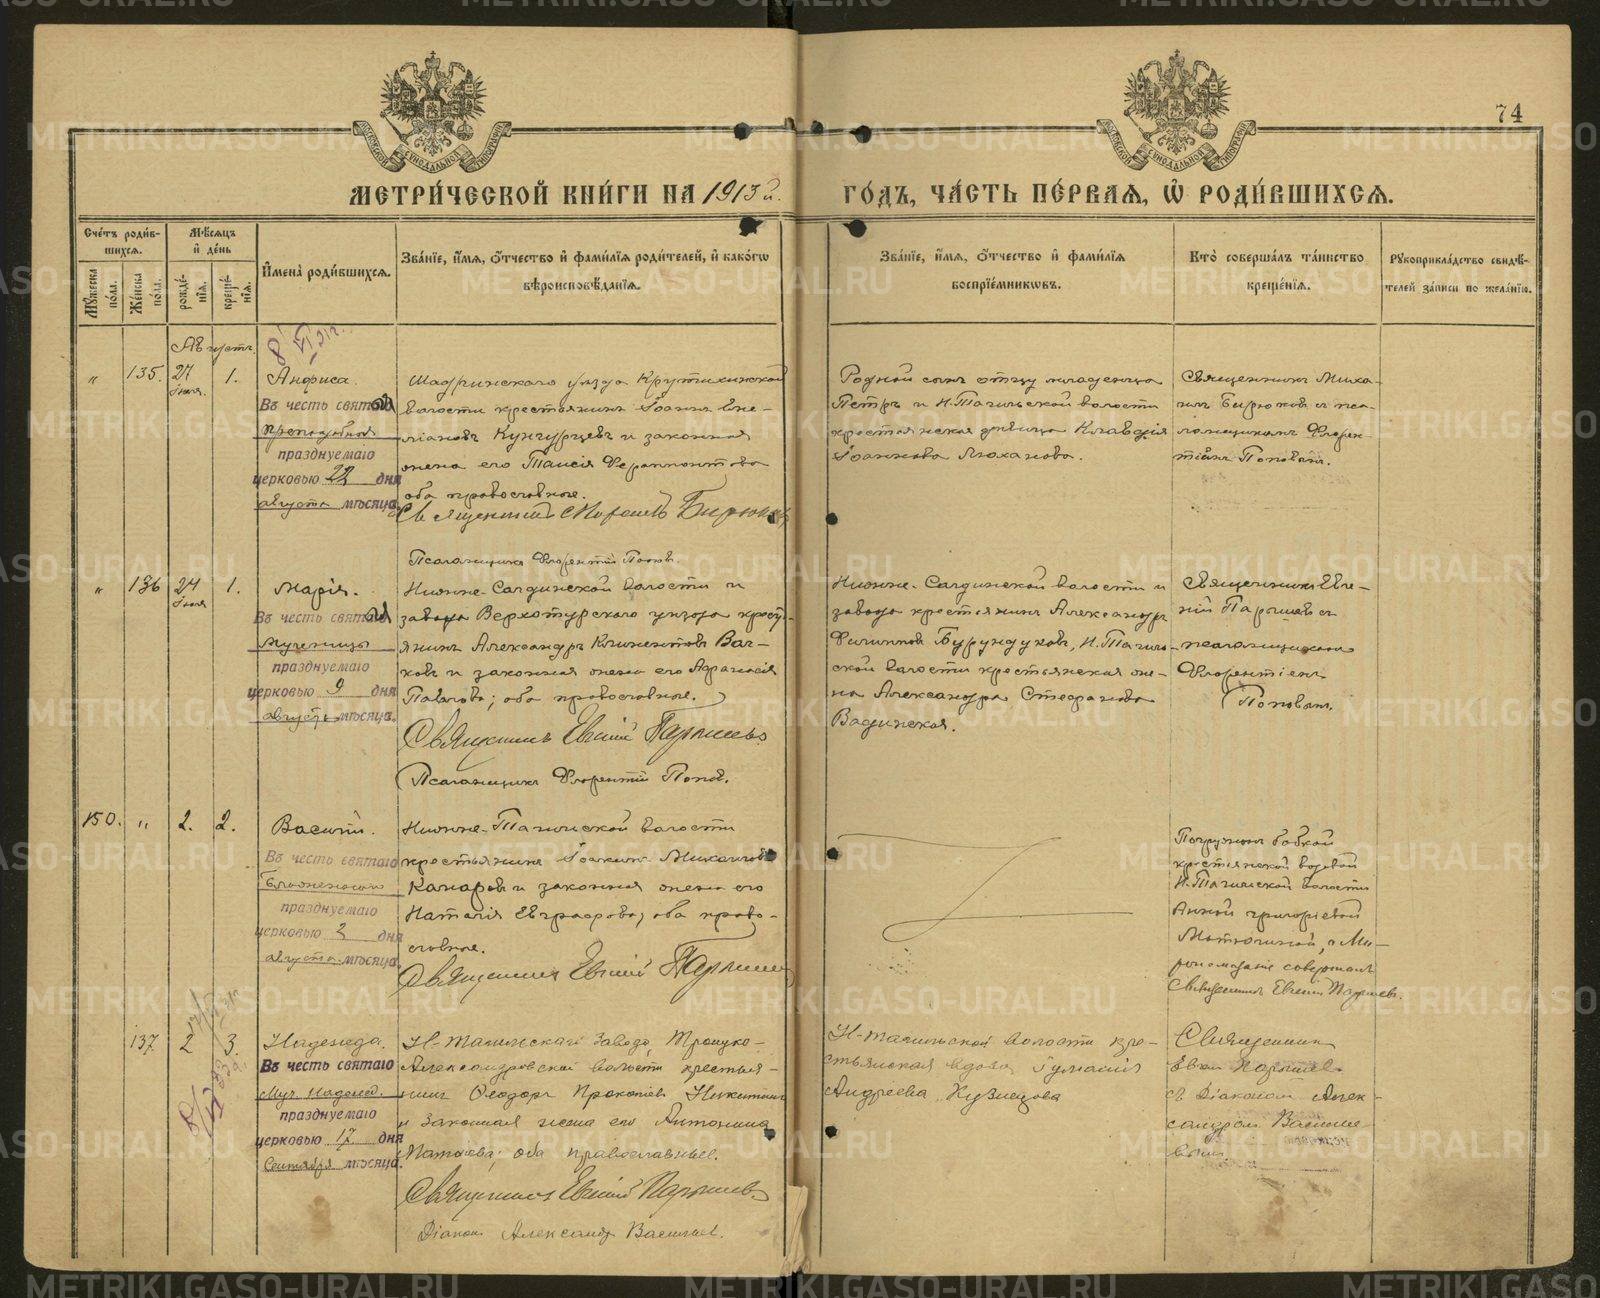 74
МЕТРИ́ЧЕСКОЙ КНИ́ГИ НА 1913 й. ГО́ДЪ, ЧА́СТЬ ПЕ́РВАѦ, Ѽ РОДИ́ВШИХСѦ.
Сче́тъ роди́в-
шихсѧ.
Мꙋ́жеска по́ла.
Же́нска по́ла.
Мѣ́сѧцъ и҆ де́нь
рожде́-
нїѧ.
креще́-
нїѧ.
И҆мена̀ роди́вшихсѧ.
Зва́нїе, и҆́мѧ, ѻ҆́тчество и҆ фами́лїѧ роди́телей, и҆ како́гѡ
вѣроисповѣ́данїѧ.
Зва́нїе, и҆́мѧ, ѻ҆́тчество и҆ фами́лїѧ
воспрїе́мникѡвъ.
Кто̀ соверша́лъ та́инство
креще́нїѧ.
Рꙋкоприкла́дство свидѣ́-
телей за́писи по жела́нїю.
Августъ.
„ 135. 27 Іюля. 1.
Анфиса
Въ честь святой
преподобная
празднуемаго
церковью 22 дня
августа мѣсяца
Шадринскаго уѣзда Крутихинской
волости крестьянинъ Іоаннъ Еме-
ліановъ Кунгурцевъ и законная
жена его Таисія Ферапонтова
оба православные.
Священникъ Михаилъ Бирюковъ
Псаломщикъ Флорентій Поповъ.
Родной сынъ отцу младенца
Петръ и Н.Тагильской волости
крестьянская дѣвица Клавдія
Іоаннова Ляханова.
Священникъ Миха-
илъ Бирюковъ съ пса-
ломщикомъ Флорен-
тіемъ Поповымъ.
„ 136 24 Іюля 1.
Марія.
Въ честь святой
Мученицы
празднуемаго
церковью 9 дня
августа мѣсяца.
Нижне-Салдинской волости и
завода Верхотурскаго уѣзда кресть-
янинъ Александръ Климентовъ Вол-
ковъ и законная жена его Афанасія
Павлова; оба православные.
Священникъ Евгеній Парышевъ
Псаломщикъ Флорентій Поповъ.
Нижне-Салдинской волости и
завода крестьянинъ Александръ
Филипповъ Бурундуковъ, Н.Тагиль-
ской волости крестьянская же-
на Александра Стефанова
Вадинская.
Священникъ Евге-
ній Парышевъ съ
псаломщикомъ
Флорентіемъ
Поповымъ.
150. „ 2. 2.
Василій.
Въ честь святаго
Блаженнаго
празднуемаго
церковью 2 дня
августа мѣсяца
Нижне-Тагильской волости
крестьянинъ Іоакимъ Михаиловъ
Комаровъ и законная жена его
Наталія Евграфова, оба право-
славные.
Священникъ Евгеній Парышевъ
Погружен бабкой
крестьянской вдовой
Н.Тагильской волости
Анной Григоріевой
Матюгиной, а Ми-
ропомазаніе совершалъ
Священникъ Евгеній Парышевъ.
137 2 3.
Надежда.
Въ честь святаго
Муч. Надежд.
празднуемаго
церковью 17 дня
Сентября мѣсяца.
Н-Тагильскаго Завода, Троицко-
Александровской волости крестья-
нинъ Ѳеодоръ Прокопіевъ Никитинъ
и законная жена его Антонина
Матѳіева; оба православные.
Священникъ Евгеній Парышевъ
Діаконъ Александръ Васильевъ.
Н-Тагильской волости кре-
стьянская вдова Іуліанія
Андреева Кузнецова
Священникъ
Евген Парышев
съ Діакономъ Алек-
сандромъ Василье-
вымъ